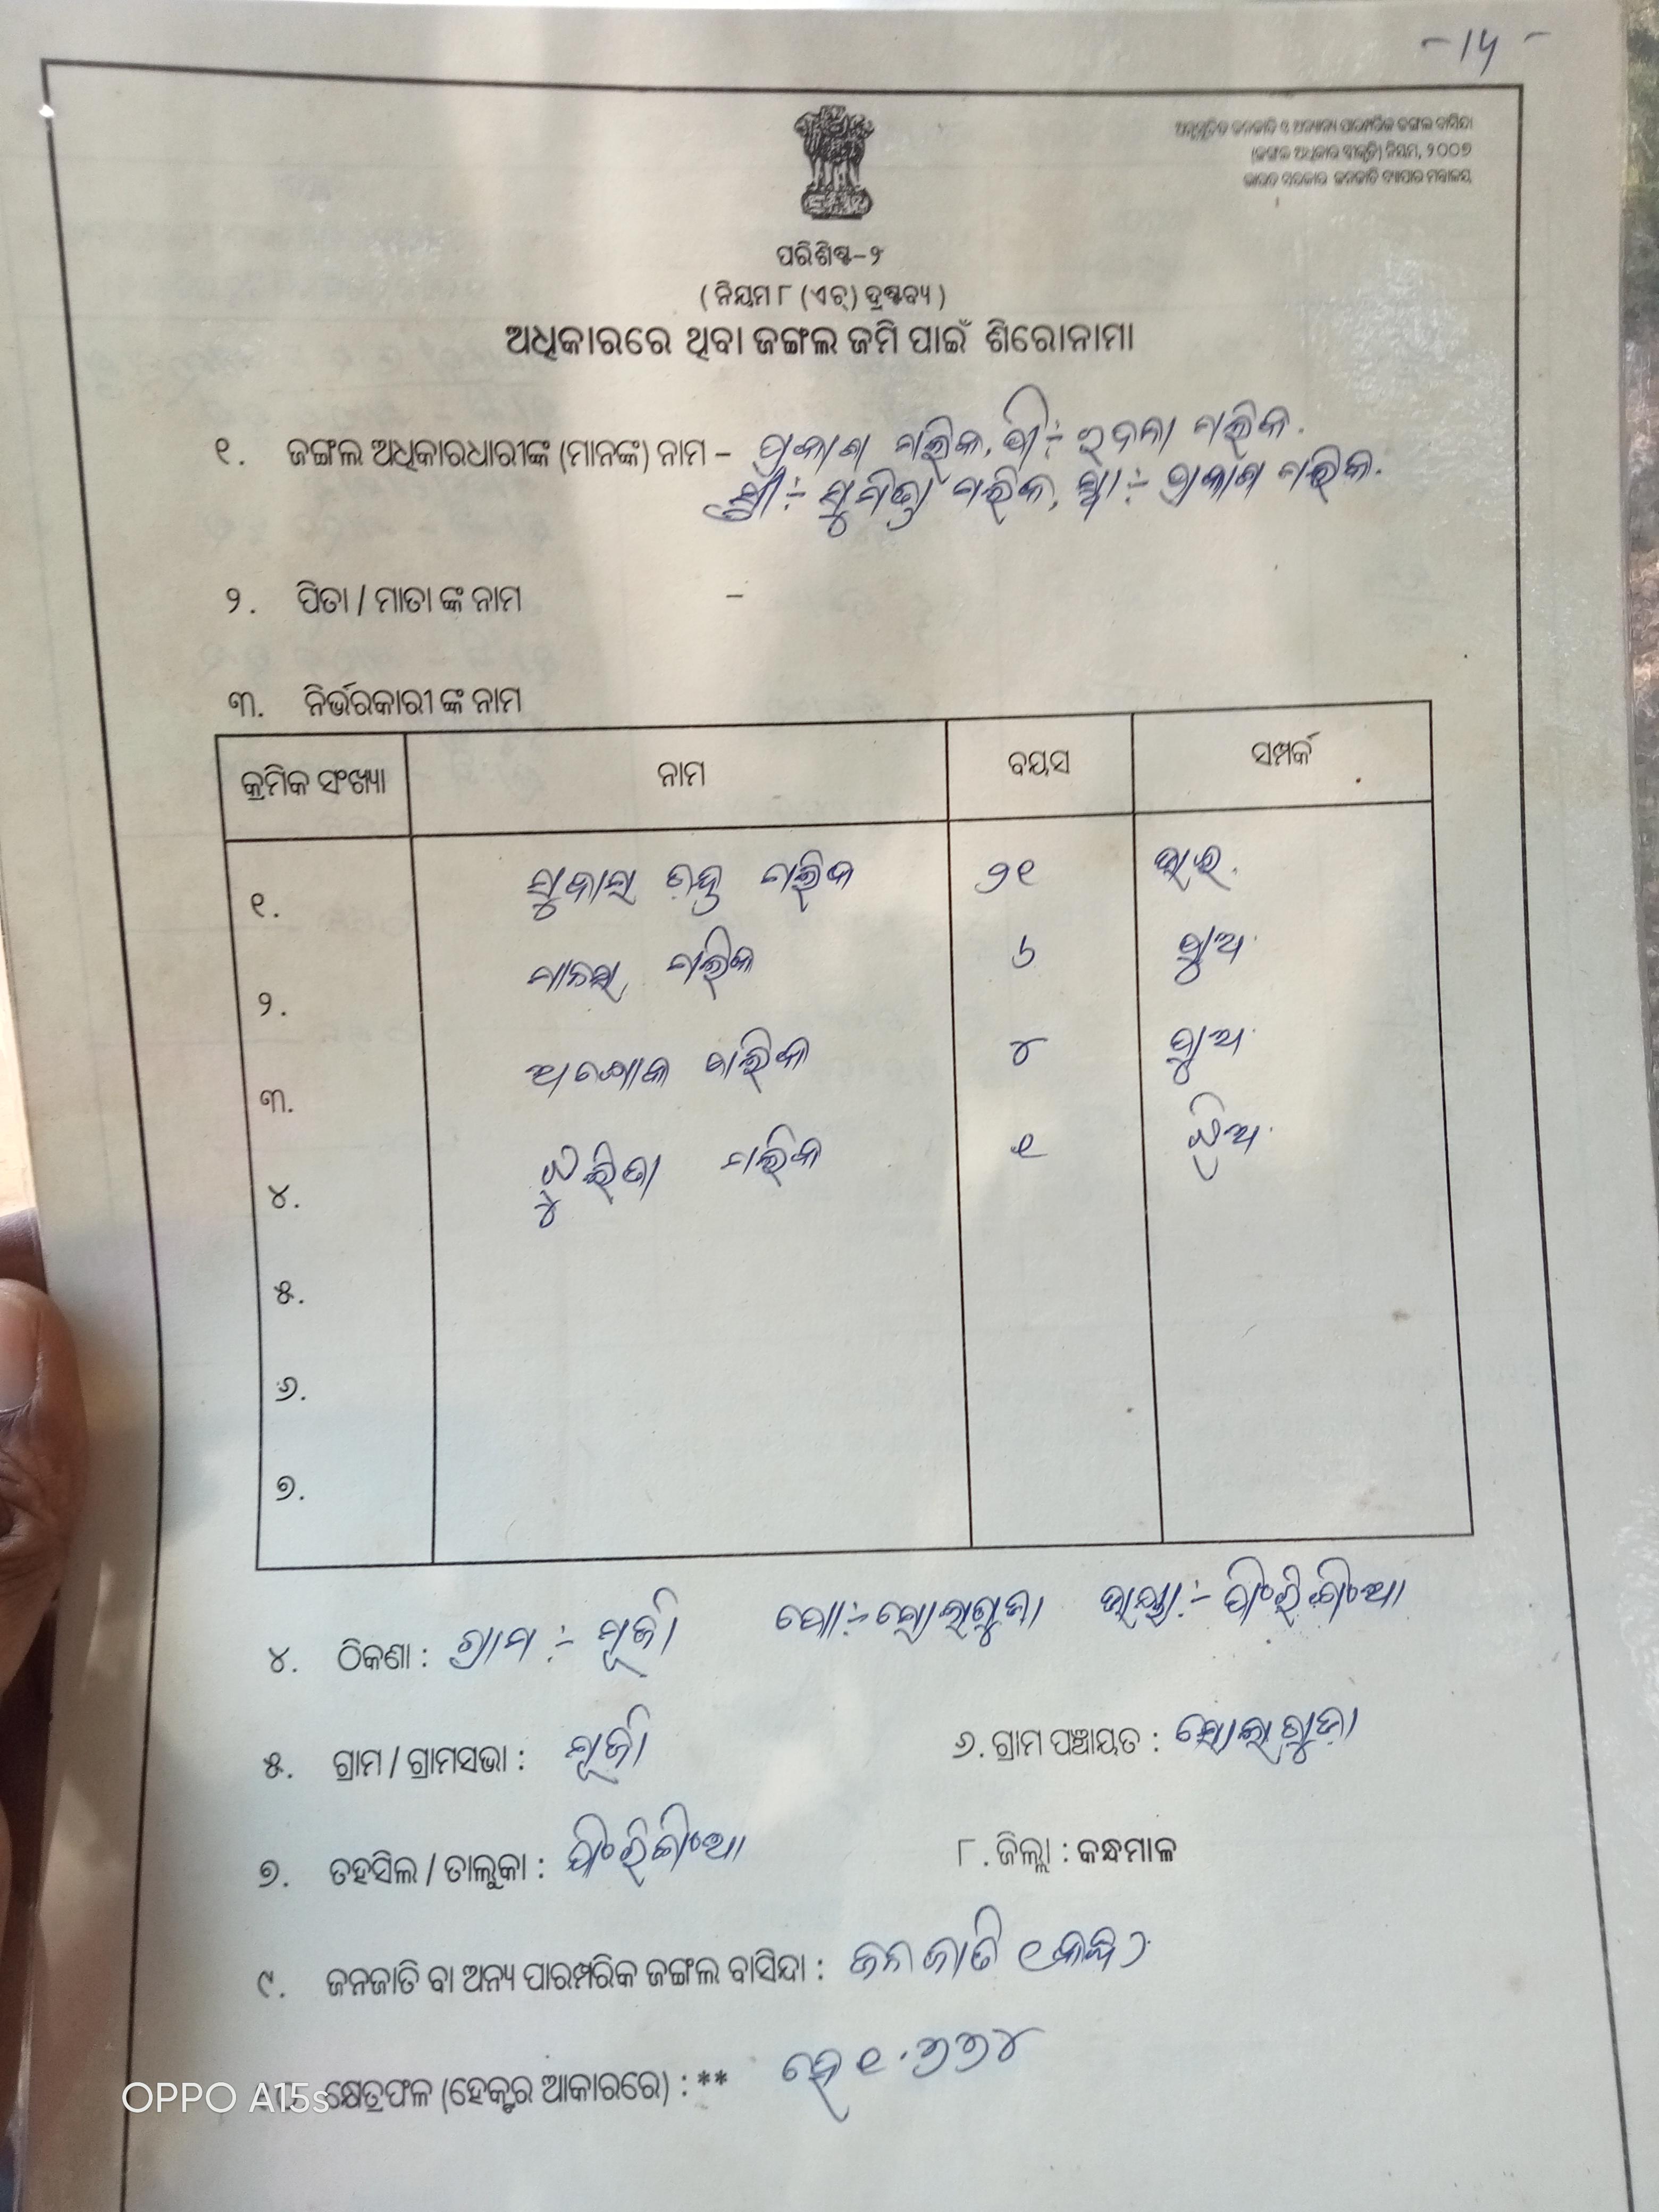 - 14 -
ଅନୁସୂଚିତ ଜନଜାତି ଓ ଅନ୍ୟାନ୍ୟ ପାରମ୍ପରିକ ଜଙ୍ଗଲ ବାସିନ୍ଦା
(ଜଙ୍ଗଲ ଅଧିକାର ସ୍ୱୀକୃତି) ନିୟମ, ୨୦୦୭
ଭାରତ ସରକାର ଜନଜାତି ବ୍ୟାପାର ମନ୍ତ୍ରାଳୟ
ପରିଶିଷ୍ଟ-୨
( ନିୟମ ୮ (ଏଚ୍) ଦ୍ରଷ୍ଟବ୍ୟ )
ଅଧିକାରରେ ଥିବା ଜଙ୍ଗଲ ଜମି ପାଇଁ ଶିରୋନାମା
୧. ଜଙ୍ଗଲ ଅଧିକାରଧାରୀଙ୍କ (ମାନଙ୍କ) ନାମ - ପ୍ରକାଶ ମଲ୍ଲିକ, ପି:- ମଲ୍ଲିକ.
ସ୍ତ୍ରୀ:- ସୁମିତ୍ରା ମଲ୍ଲିକ, ସ୍ୱା:- ପ୍ରକାଶ ମଲ୍ଲିକ.
୨. ପିତା / ମାତା ଙ୍କ ନାମ -
୩. ନିର୍ଭରକାରୀ ଙ୍କ ନାମ
କ୍ରମିକ ସଂଖ୍ୟା ନାମ ବୟସ ସମ୍ପର୍କ
୧. ମଲ୍ଲିକ ୨୧ ଭାଇ.
୨. ମାନସ ମଲ୍ଲିକ ୬ ପୁଅ
୩. ଅଶୋକ ମଲ୍ଲିକ ୪ ପୁଅ
୪. ମଲ୍ଲିକ ୧ ଝିଅ
୫.
୬.
୭.
୪. ଠିକଣା : ଗ୍ରାମ :- ମୂର୍ଜା ପୋ:- ଭାୟା:- ଫିରିଙ୍ଗିଆ
୫. ଗ୍ରାମ / ଗ୍ରାମସଭା : ମୂର୍ଜା
୬. ଗ୍ରାମ ପଞ୍ଚାୟତ :
୭. ତହସିଲ / ତାଲୁକା : ଫିରିଙ୍ଗିଆ
୮. ଜିଲ୍ଲା : କନ୍ଧମାଳ
୯. ଜନଜାତି ବା ଅନ୍ୟ ପାରମ୍ପରିକ ଜଙ୍ଗଲ ବାସିନ୍ଦା : ଜନଜାତି (କନ୍ଧ)
କ୍ଷେତ୍ରଫଳ (ହେକ୍ଟର ଆକାରରେ) : ** ହେ ୧.୭୭୪
OPPO A15s